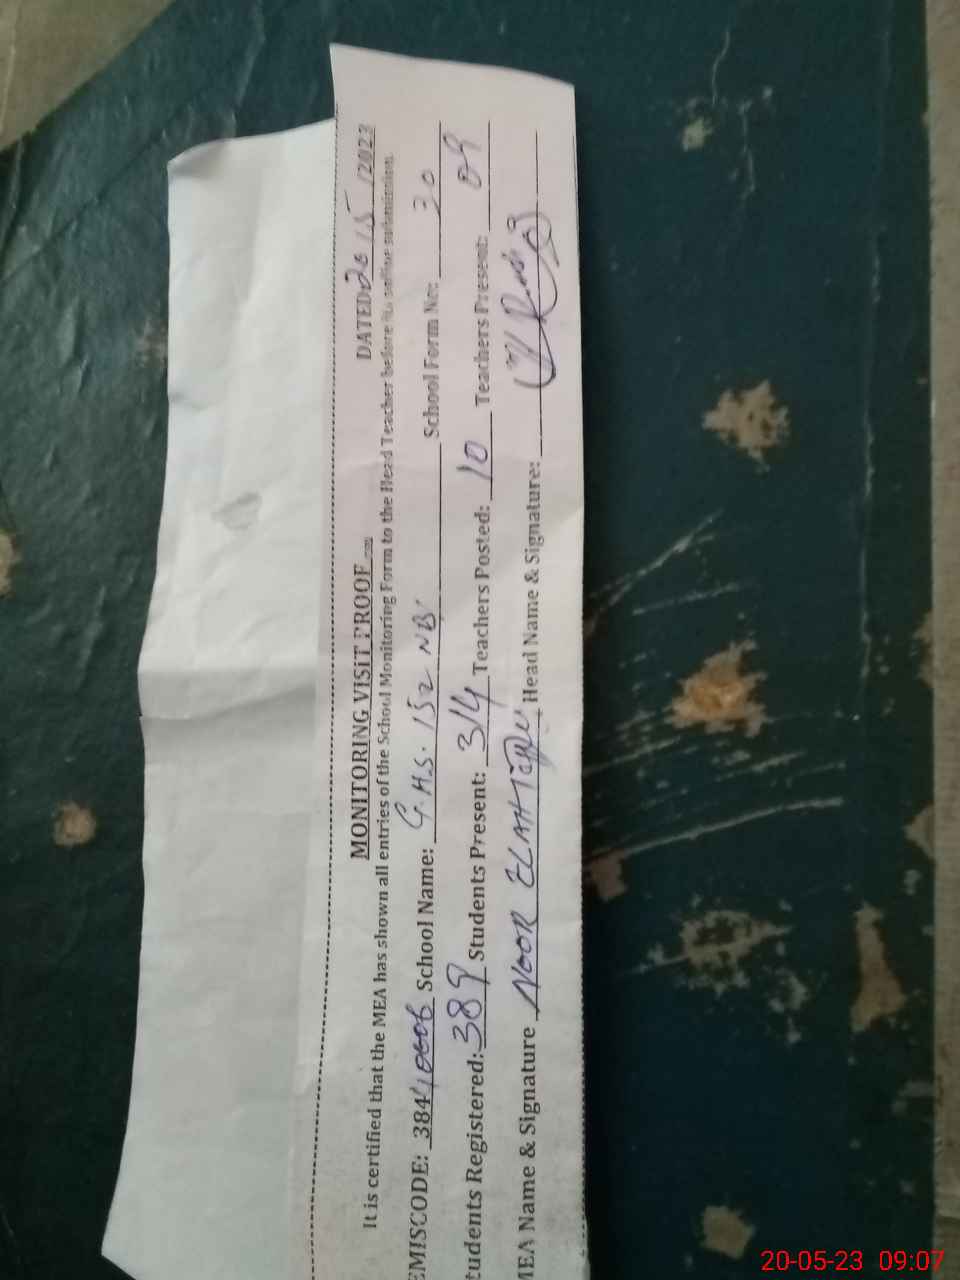 MONITORING VISIT PROOF DATED: 20/5/2023
It is certified that the MEA has shown all entries of the School Monitoring Form to the Head Teacher before its online submission.
EMISCODE: 38440006 School Name: G.H.S. 152 NB School Form No: 30
tudents Registered: 389 Students Present: 314 Teachers Posted: 10 Teachers Present: 09
MEA Name & Signature NOOR ELAHI Head Name & Signature:
20-05-23 09:07